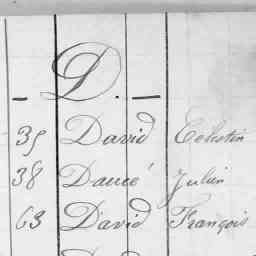 — D. —
35 David Célestin
38 Daucé Julien
63 David François